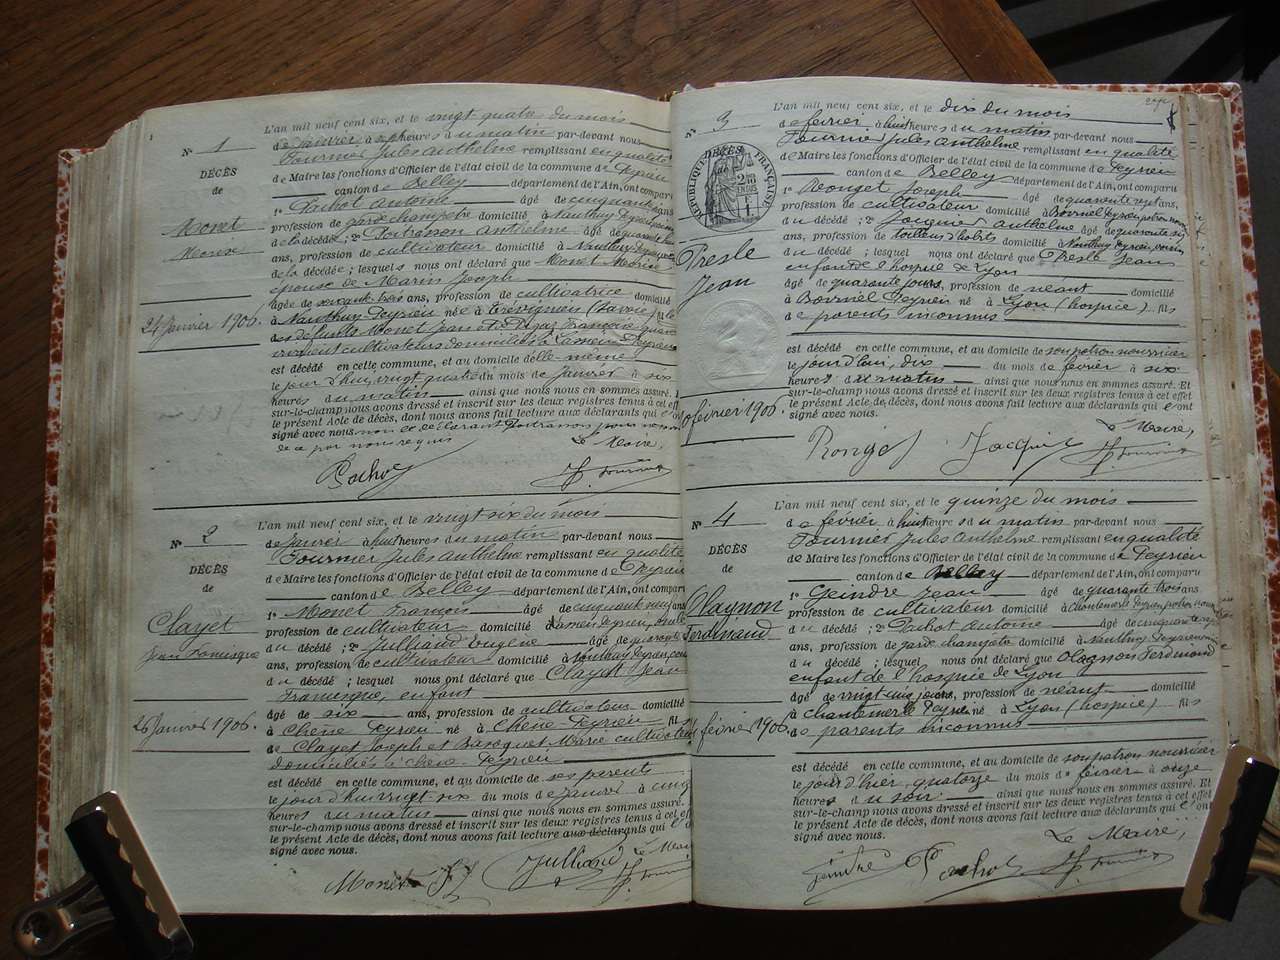 1
N° 1
DÉCÈS
de
Monet
24 Janvier 1906.
L'an mil neuf cent six, et le vingt quatre du mois
de Janvier à heures du matin par-devant nous
Fournier Jules Anthelme remplissant en qualité
de Maire les fonctions d'Officier de l'état civil de la commune de Peyrieu
canton de Belley département de l'Ain, ont comparu
1° Pachot Antoine âgé de cinquante ans
profession de garde champêtre domicilié à Nanthuy Peyrieu
de la décédé ; 2° Anthelme âgé de quarante
ans, profession de cultivateur domicilié à Nanthuy Peyrieu
de la décédée ; lesquels nous ont déclaré que Monet
épouse de Marin Joseph
âgée de soixante trois ans, profession de cultivatrice domiciliée
à Nanthuy Peyrieu née à Trévignieu (Savoie) fille
des défunts Monet Jean et Françoise quand
vivaient cultivateurs domiciliés à Peyrieu
est décédé en cette commune, et au domicile d'elle-même
le jour d'huy, vingt quatre du mois de Janvier à six
heures du matin ainsi que nous nous en sommes assuré.
sur-le-champ nous avons dressé et inscrit sur les deux registres tenus à cet effet
le présent Acte de décès, dont nous avons fait lecture aux déclarants qui
signé avec nous non le déclarant pour
de ce par nous requis
Le Maire,
Pachot
J. Fournier
N° 2
DÉCÈS
de
Clayet
Jean Francisque
26 Janvier 1906.
L'an mil neuf cent six, et le vingt six du mois
de Janvier à huit heures du matin par-devant nous
Fournier Jules Anthelme remplissant en qualité
de Maire les fonctions d'Officier de l'état civil de la commune de Peyrieu
canton de Belley département de l'Ain, ont comparu
1° Monet François âgé de cinquante neuf ans
profession de cultivateur domicilié à Peyrieu, oncle
du décédé ; 2° Julliand Eugène âgé de quarante
ans, profession de cultivateur domicilié à Nanthuy Peyrieu
du décédé ; lesquels nous ont déclaré que Clayet Jean
Francisque, enfant
âgé de six ans, profession de cultivateur domicilié
à Chêne Peyrieu né à Chêne Peyrieu fils
de Clayet Joseph et Marie cultivateurs
domiciliés à Chêne Peyrieu
est décédé en cette commune, et au domicile de ses parents
le jour d'hui vingt six du mois de Janvier à cinq
heures du matin ainsi que nous nous en sommes assuré.
sur-le-champ nous avons dressé et inscrit sur les deux registres tenus à cet effet
le présent Acte de décès, dont nous avons fait lecture aux déclarants qui
signé avec nous.
Le Maire
Monet
Julliand
J. Fournier
N° 3
DÉCÈS
RÉPUBLIQUE FRANÇAISE
Presle
Jean
10 février 1906.
L'an mil neuf cent six, et le dix du mois
de février à huit heures du matin par-devant nous
Fournier Jules Anthelme remplissant en qualité
de Maire les fonctions d'Officier de l'état civil de la commune de Peyrieu
canton de Belley département de l'Ain, ont comparu
1° Rouget Joseph âgé de quarante sept ans,
profession de cultivateur domicilié à Peyrieu patron nourricier
du décédé ; 2° Jacquier Anthelme âgé de quarante six
ans, profession de tailleur d'habits domicilié à Nanthuy Peyrieu, voisin
du décédé ; lesquel nous ont déclaré que Presle Jean
enfant de l'hospice de Lyon
âgé de quarante jours, profession de néant domicilié
à Peyrieu né à Lyon (hospice) fils
de parents inconnus
est décédé en cette commune, et au domicile de son patron nourricier
le jour d'hui, dix du mois de février à six
heures du matin ainsi que nous nous en sommes assuré. Et
sur-le-champ nous avons dressé et inscrit sur les deux registres tenus à cet effet
le présent Acte de décès, dont nous avons fait lecture aux déclarants qui ont
signé avec nous.
Le Maire,
Rouget
Jacquier
J. Fournier
N° 4
DÉCÈS
de
Olagnon
Ferdinand
février 1906.
L'an mil neuf cent six, et le quinze du mois
de février à huit heures du matin par-devant nous
Fournier Jules Anthelme remplissant en qualité
de Maire les fonctions d'Officier de l'état civil de la commune de Peyrieu
canton de Belley département de l'Ain, ont comparu
1° Geindre Jean âgé de quarante trois ans
profession de cultivateur domicilié à Chantemerle Peyrieu patron
du décédé ; 2° Pachot Antoine âgé de cinquante
ans, profession de garde champêtre domicilié à Nanthuy Peyrieu
du décédé ; lesquel nous ont déclaré que Olagnon Ferdinand
enfant de l'hospice de Lyon
âgé de vingt cinq jours, profession de néant domicilié
à Chantemerle Peyrieu né à Lyon (hospice) fils
de parents inconnus
est décédé en cette commune, et au domicile de son patron nourricier
le jour d'hier, quatorze du mois de février à onze
heures du soir ainsi que nous nous en sommes assuré. Et
sur-le-champ nous avons dressé et inscrit sur les deux registres tenus à cet effet
le présent Acte de décès, dont nous avons fait lecture aux déclarants qui ont
signé avec nous.
Le Maire,
geindre
Pachot
J. Fournier